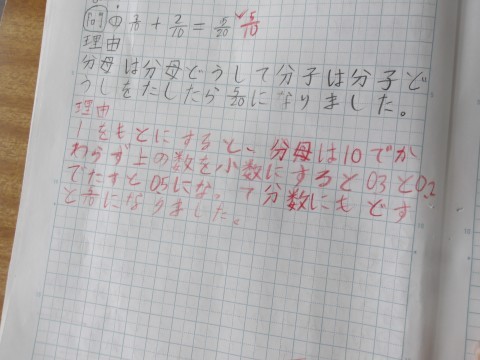 109 ① 3/10 + 2/10 = 5/20 5/10
理由
分母は分母どうしで分子は分子ど
うしをたしたら5/20になりました。
理由
1をもとにすると、分母は10でか
わらず上の数を小数にすると03と0.2
でたすと05になって分数にもどす
と5/10になりました。